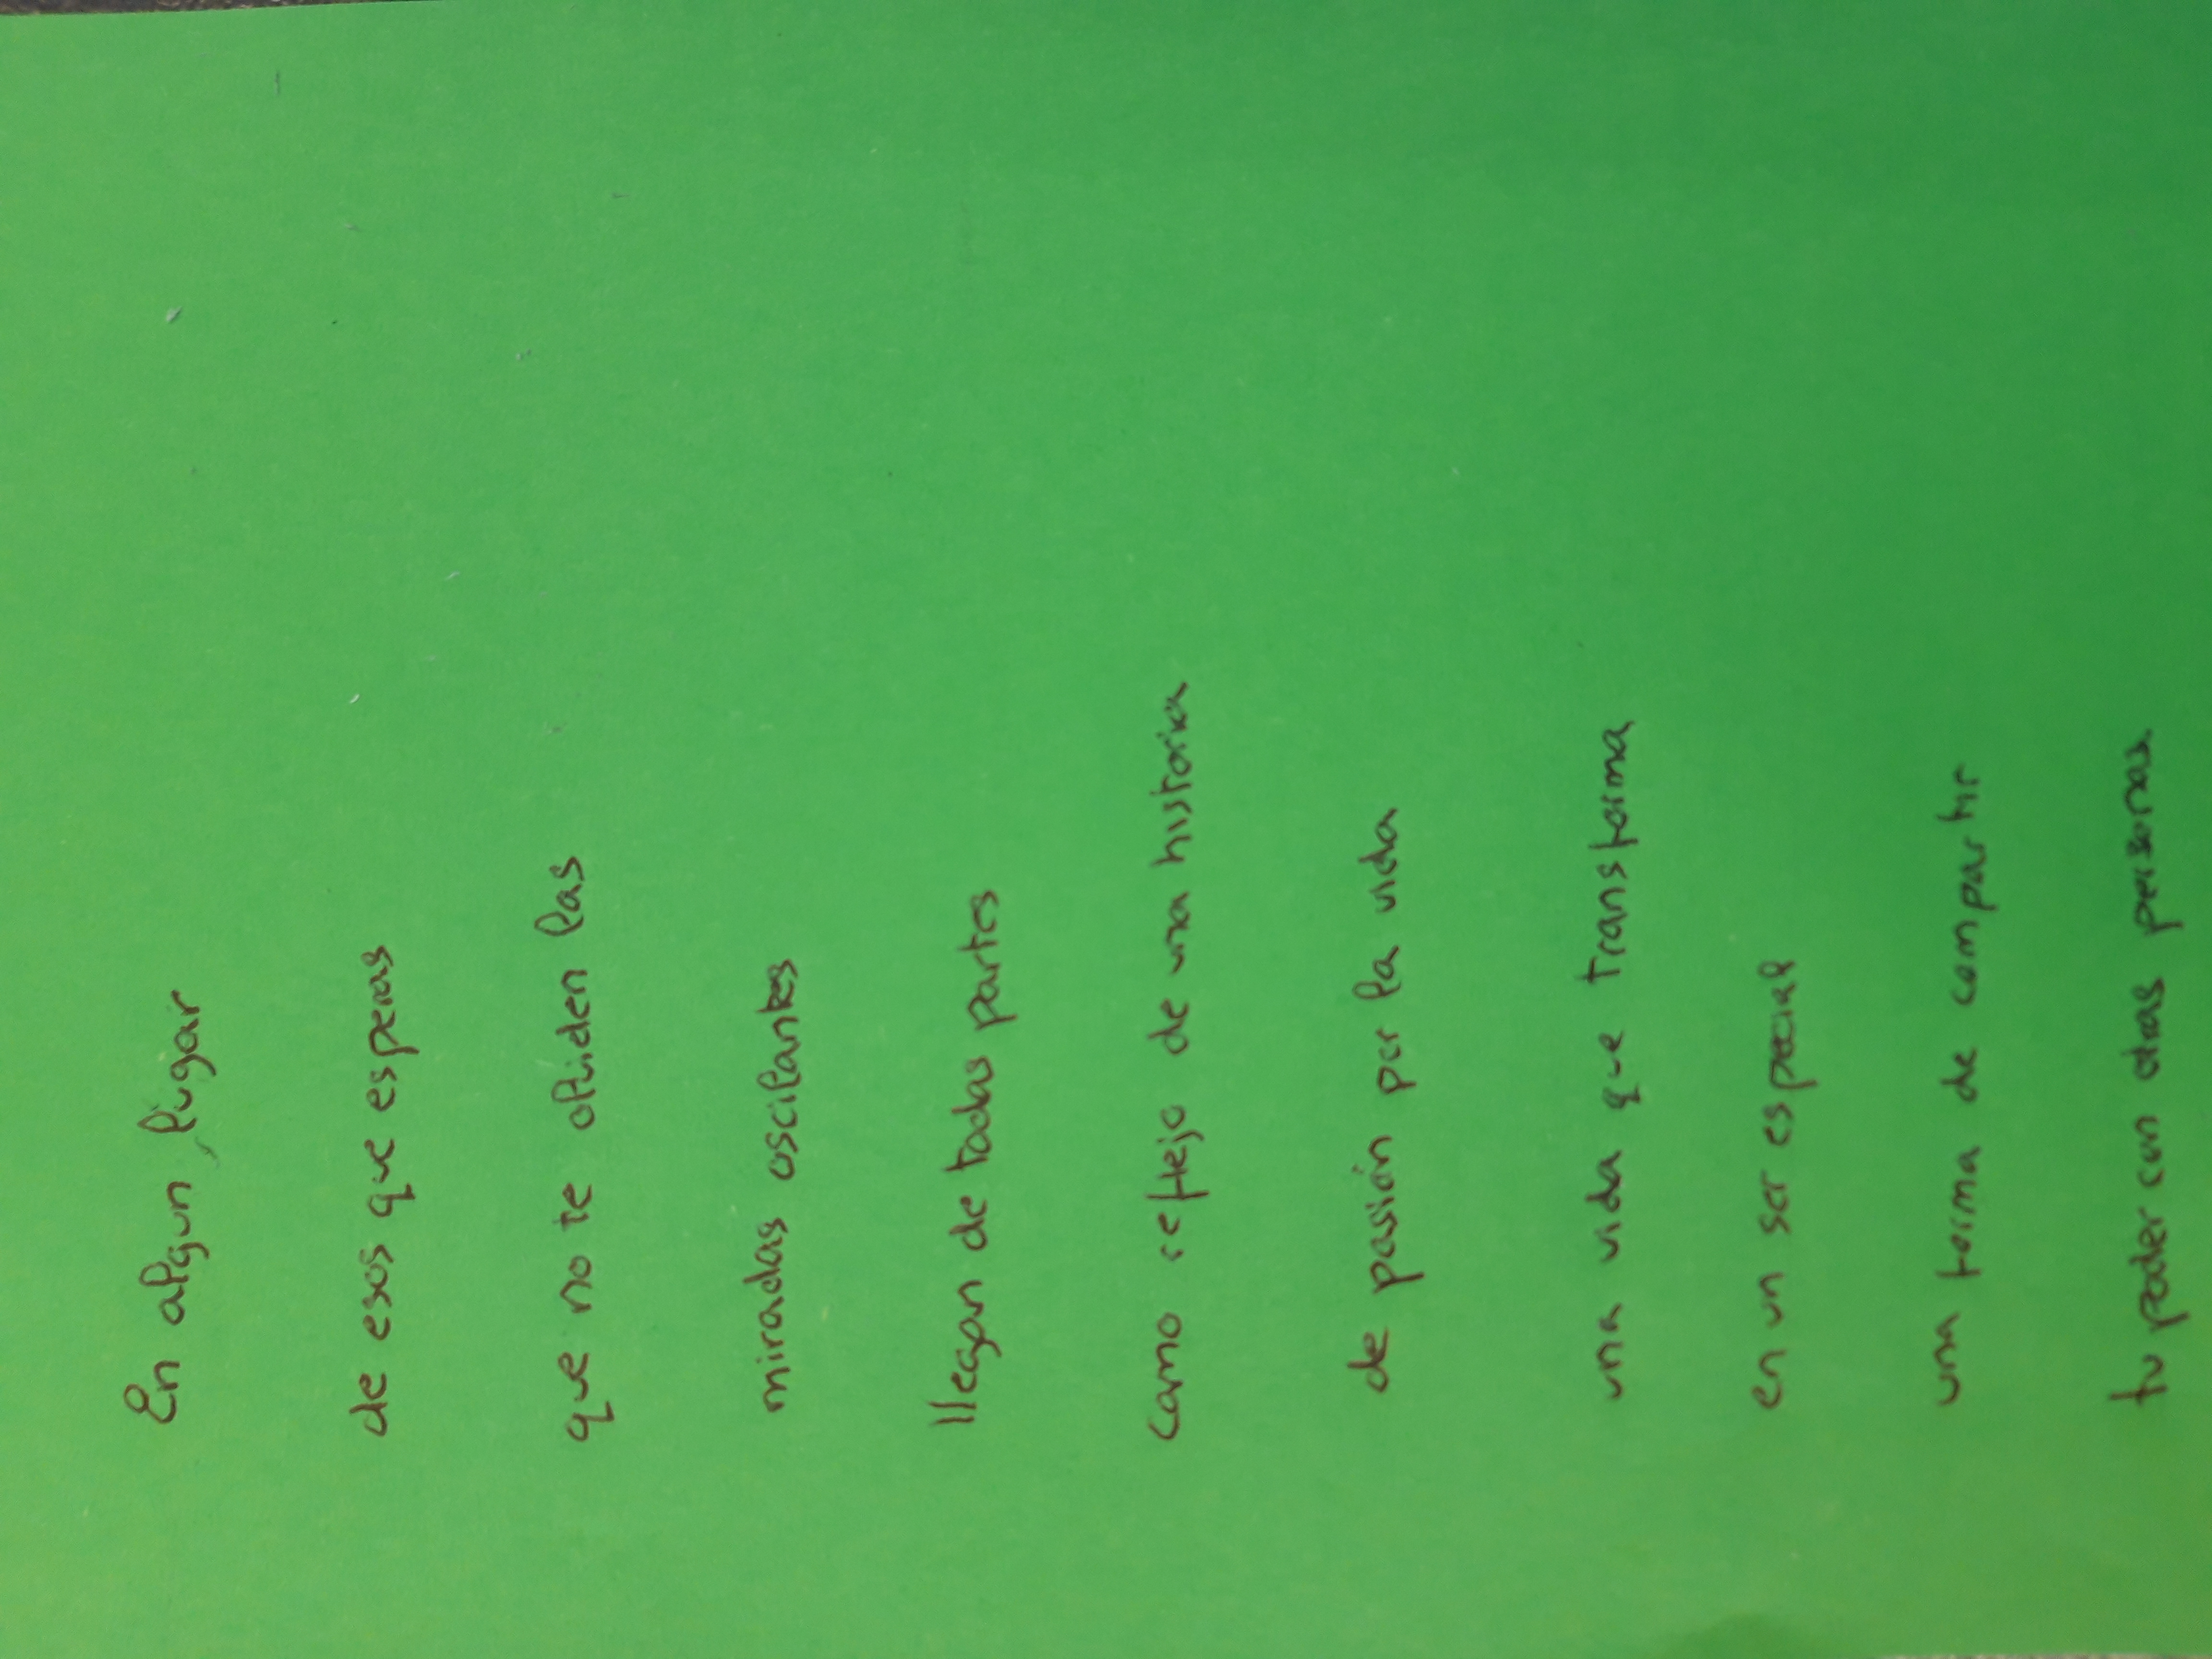 En algun lugar
de esos que esperas
que no te olviden las
miradas oscilantes
llegan de todas partes
como reflejo de una historia
de pasión por la vida
una vida que transforma
en un ser especial
una forma de compartir
tu poder con otras personas.